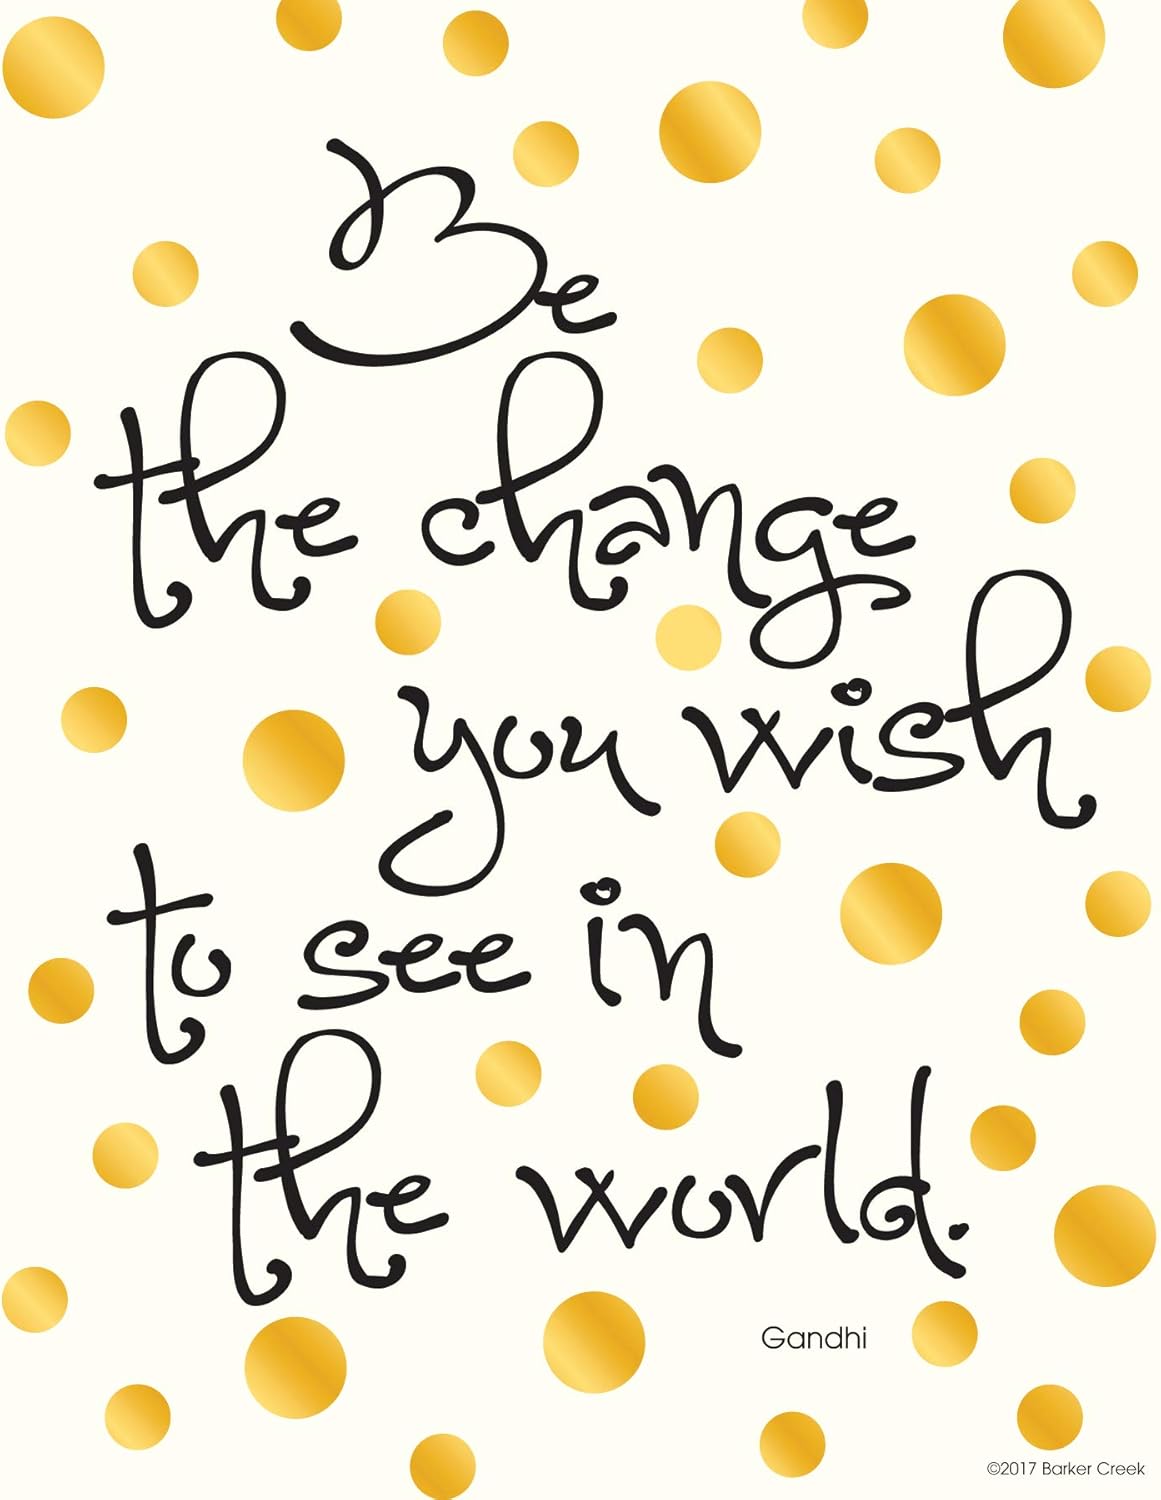 Be
the change
you wish
to see in
the world.
Gandhi
©2017 Barker Creek